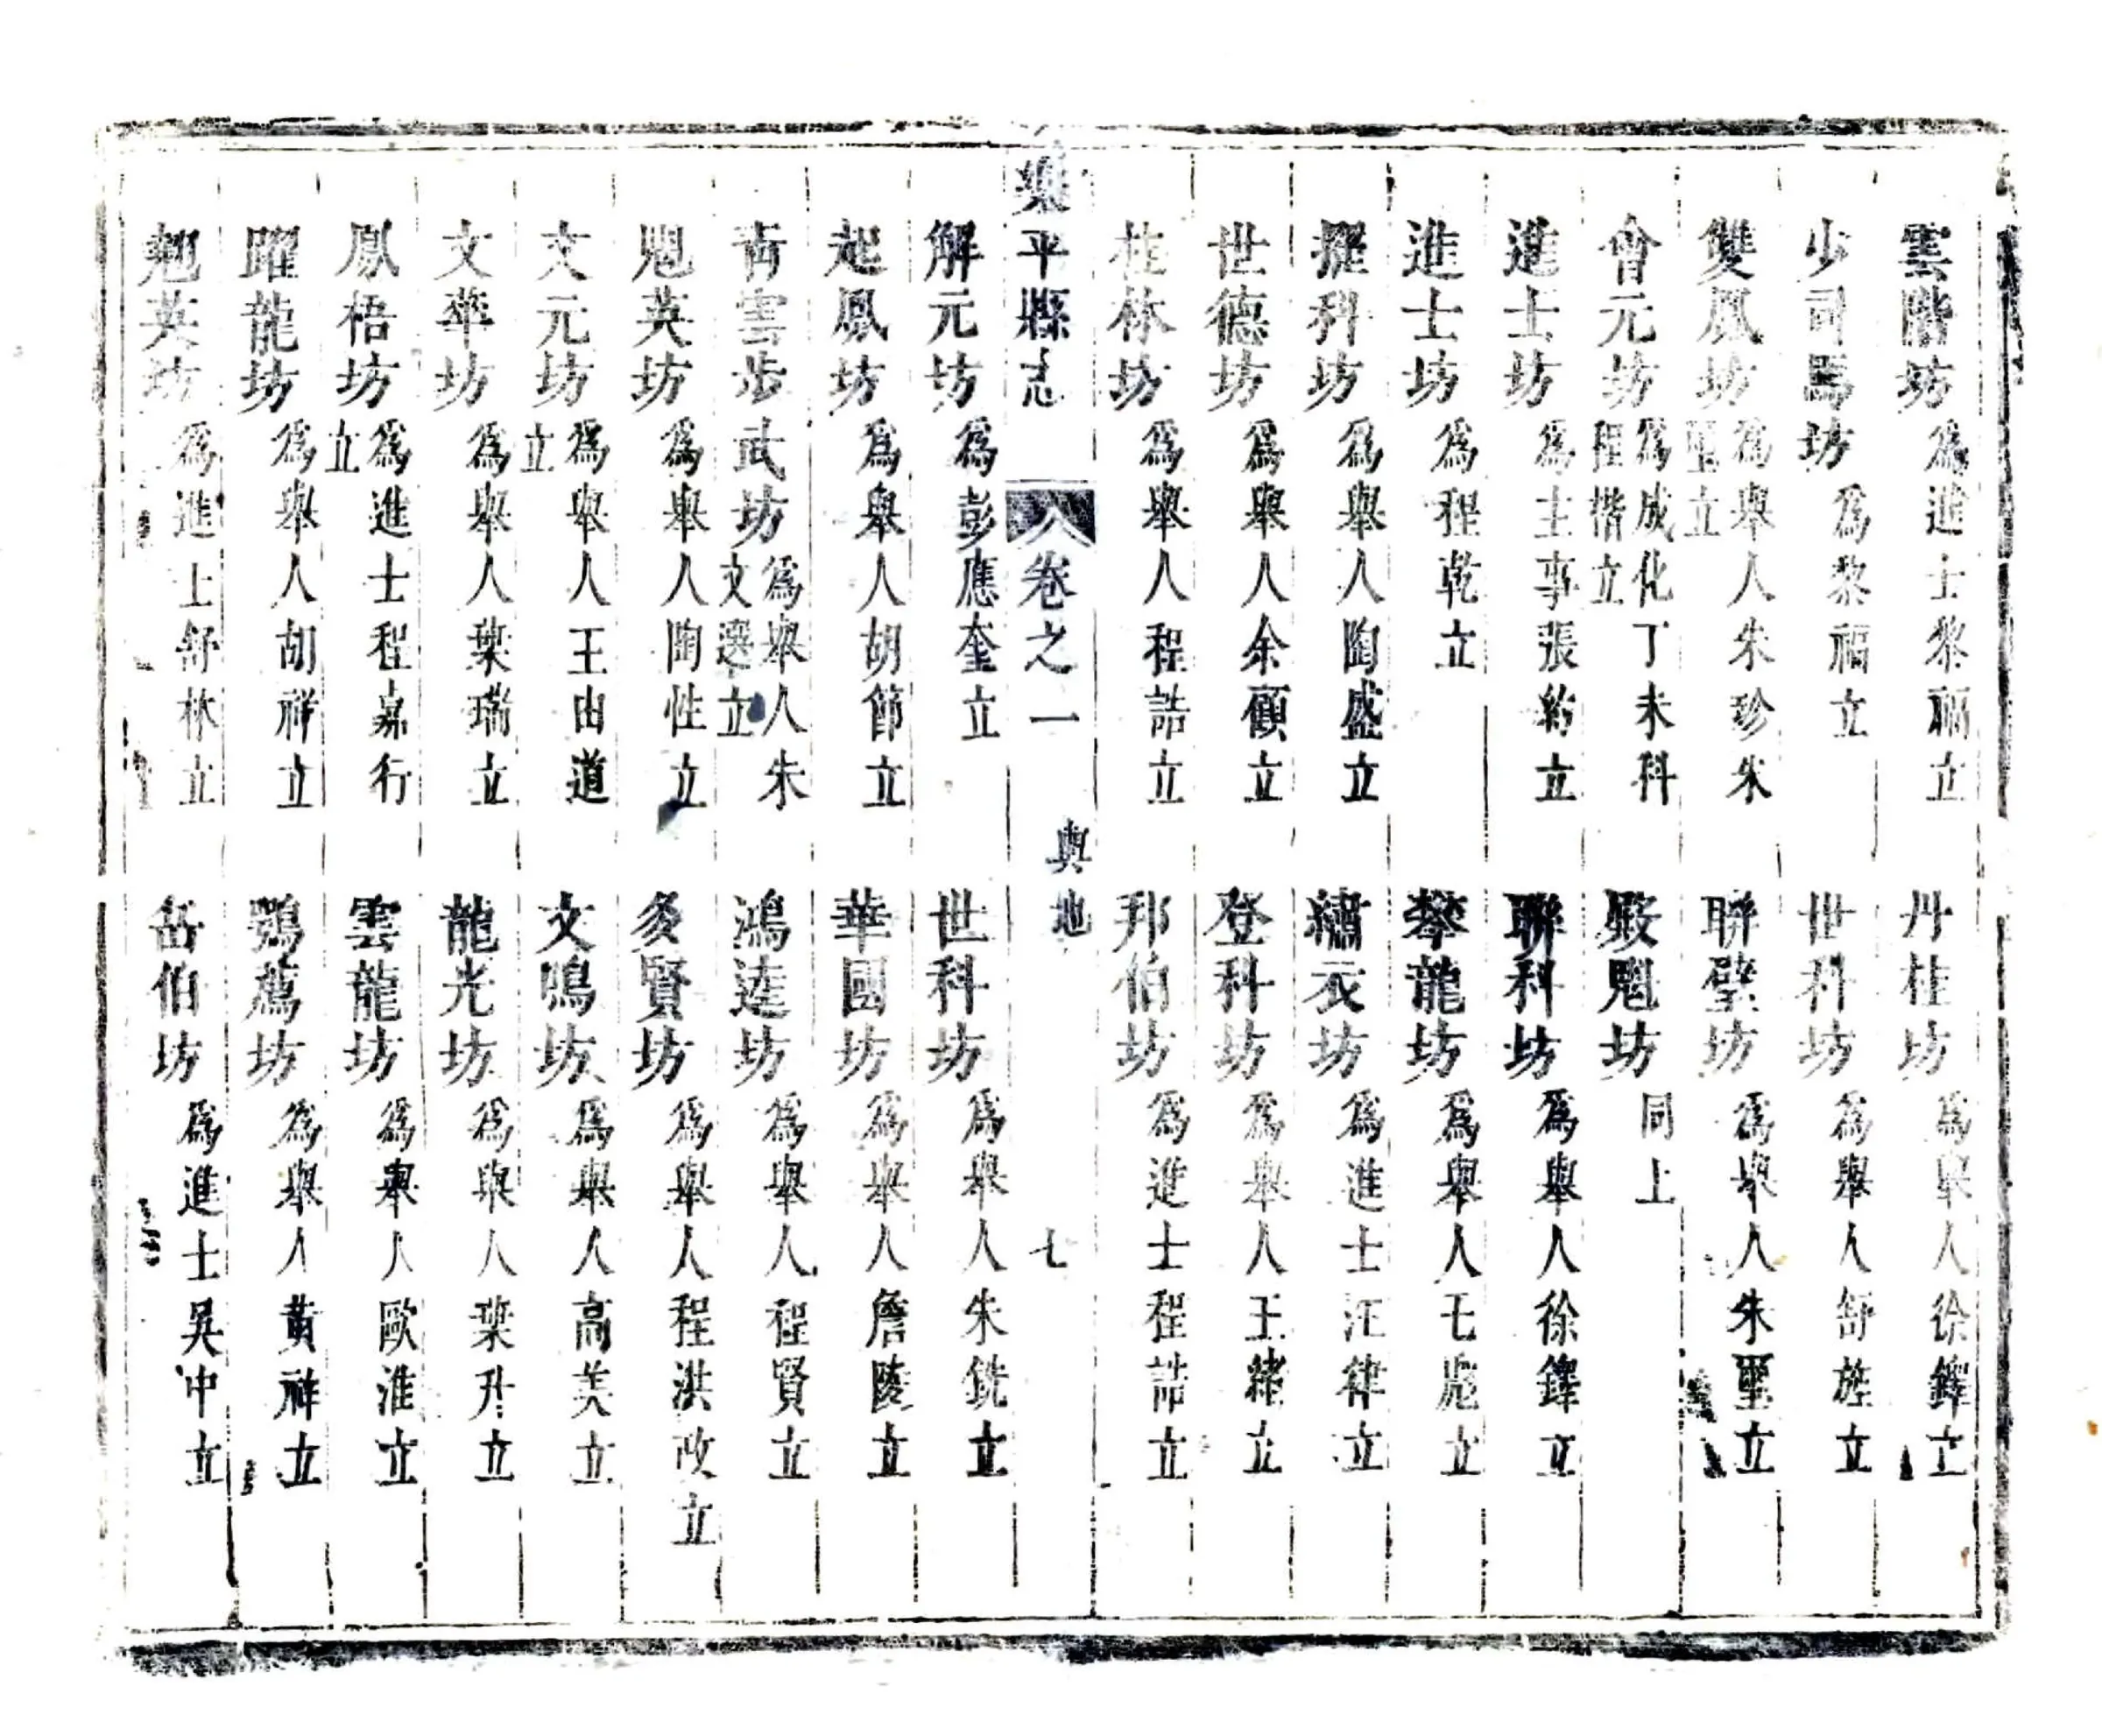 雲階坊爲進士黎福立　丹桂坊爲舉人徐鐸立
少司馬坊爲黎福立　世科坊爲舉人舒旌立
雙鳳坊爲舉人朱珍朱璽立　聯璧坊爲舉人朱璽立
會元坊爲成化丁未科程楷立　殿魁坊同上
進士坊爲主事張約立　聯科坊爲舉人徐鐸立
進士坊爲程乾立　攀龍坊爲舉人王彪立
擢科坊爲舉人陶盛立　繡衣坊爲進士汪律立
世德坊爲舉人余顧立　登科坊爲舉人王緒立
桂林坊爲舉人程誥立　邦伯坊爲進士程誥立
樂平縣志　卷之一　輿地　七
解元坊爲彭應奎立　世科坊爲舉人朱銑立
起鳳坊爲舉人胡節立　華國坊爲舉人詹陵立
青雲步武坊爲舉人朱文選立　鴻逵坊爲舉人程賢立
魁英坊爲舉人陶性立　多賢坊爲舉人程洪改立
文元坊爲舉人王由道立　文鳴坊爲舉人高美立
文華坊爲舉人葉瑞立　龍光坊爲舉人葉升立
鳳梧坊爲進士程嘉行立　雲龍坊爲舉人歐淮立
躍龍坊爲舉人胡祥立　鶚薦坊爲舉人黃祥立
翹英坊爲進士舒林立　岳伯坊爲進士吳中立